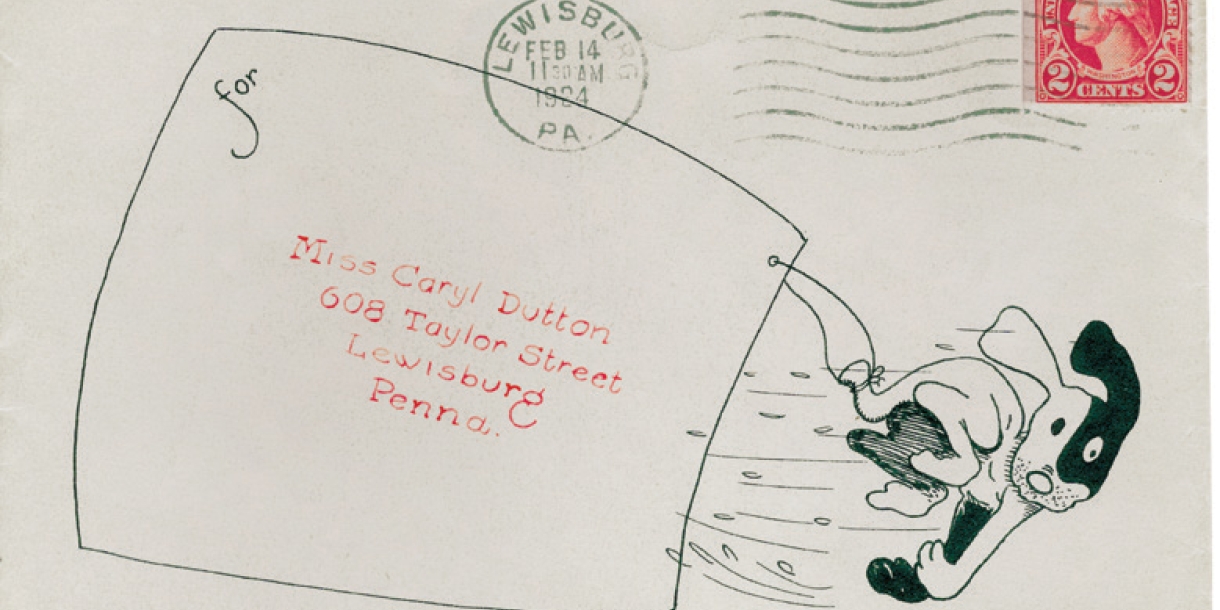 LEWISBURG
FEB 14
11 30 AM
1924
PA.
WASHINGTON
2 CENTS 2
for
Miss Caryl Dutton
608 Taylor Street
Lewisburg
Penna.